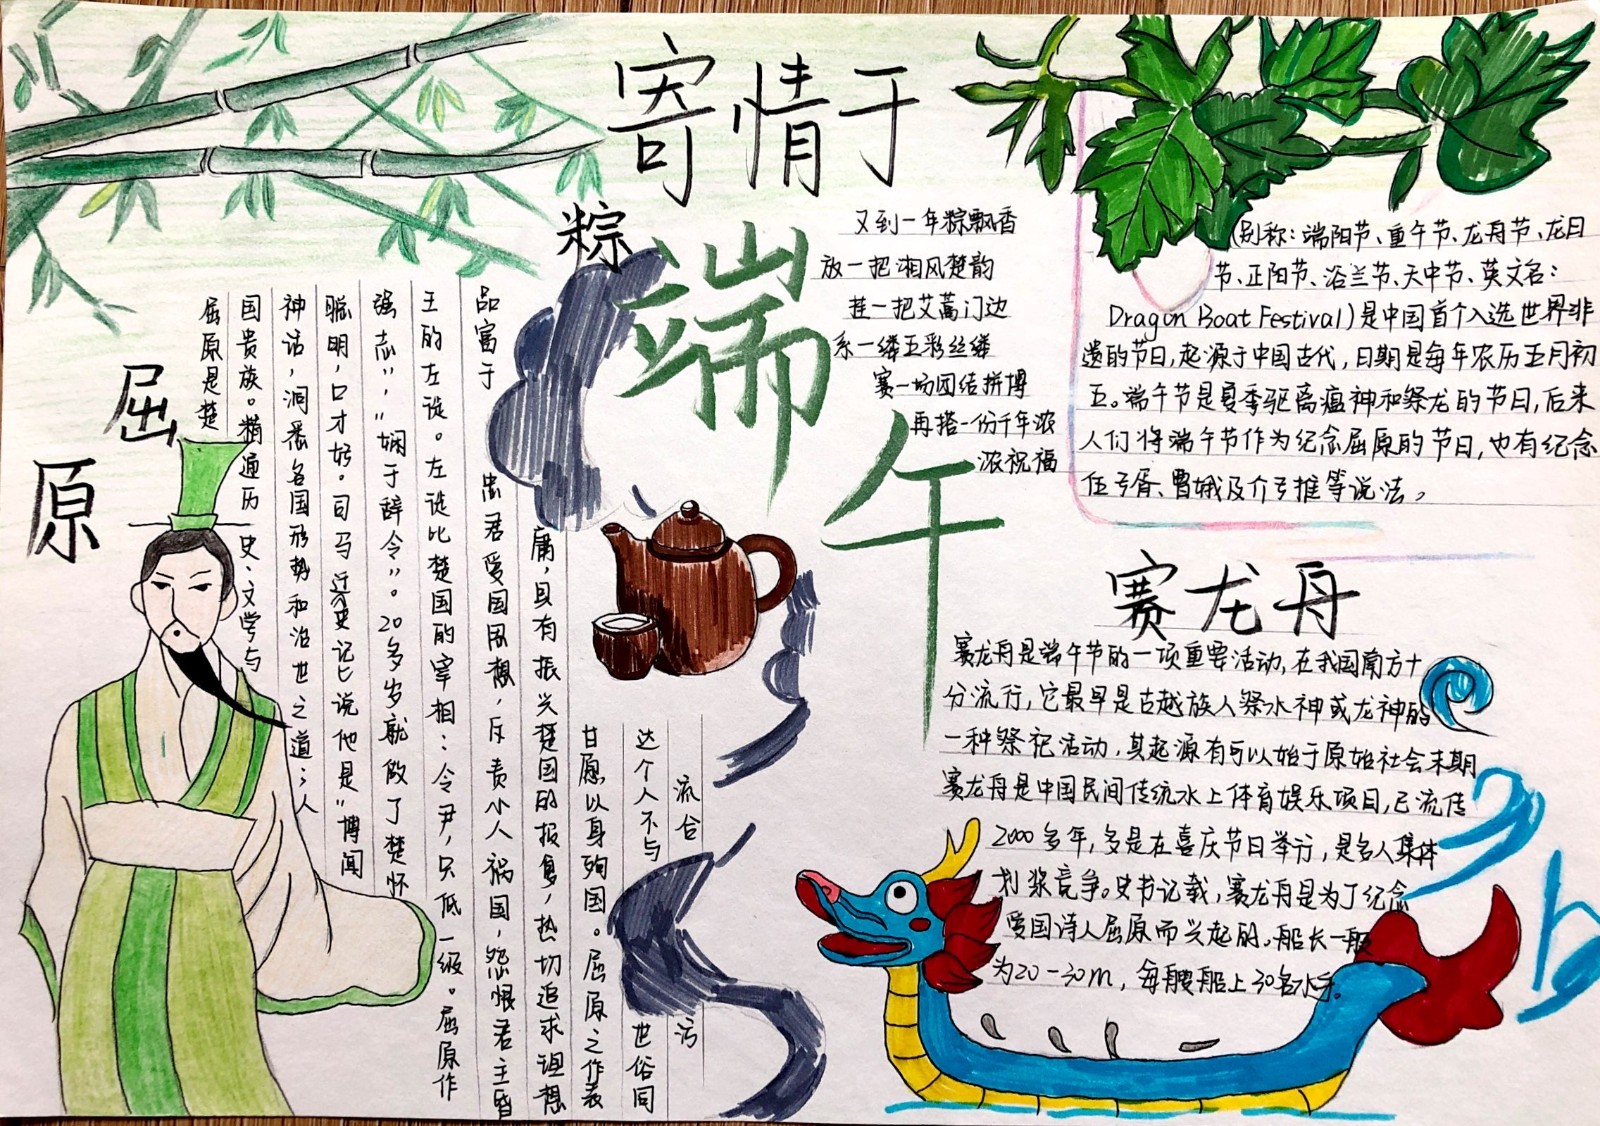 寄情于
粽
端
午
又到一年粽飘香
放一把湘风楚韵
挂一把艾蒿门边
系一缕五彩丝缕
赛一场团结拼博
再搭一份千年浓
浓祝福
(别称：端阳节、重午节、龙舟节、龙日
节、正阳节、浴兰节、天中节、英文名：
Dragon Boat Festival)是中国首个入选世界非
遗的节日，起源于中国古代，日期是每年农历五月初
五。端午节是夏季驱离瘟神和祭龙的节日，后来
人们将端午节作为纪念屈原的节日，也有纪念
伍子胥、曹娥及介子推等说法。
屈
原
屈原是楚
国贵族。精通历史、文学与
神话，洞悉各国形势和治世之道；人
聪明，口才好。司马迁史记说他是“博闻
强志”，“娴于辞令”。20多岁就做了楚怀
王的左徒。左徒比楚国的宰相：令尹，只低一级。屈原作
品富于忠君爱国思想，斥责小人祸国，怨恨君主昏
庸，具有振兴楚国的报复，热切追求理想
甘愿以身殉国。屈原之作表
达个人不与世俗同
流合污
赛龙舟
赛龙舟是端午节的一项重要活动，在我国南方十
分流行，它最早是古越族人祭水神或龙神的
一种祭祀活动，其起源有可以始于原始社会末期
赛龙舟是中国民间传统水上体育娱乐项目，已流传
2000多年，多是在喜庆节日举行，是多人集体
划桨竞争。史书记载，赛龙舟是为了纪念
爱国诗人屈原而兴起的。船长一般
为20-30m，每艘船上30名水手。